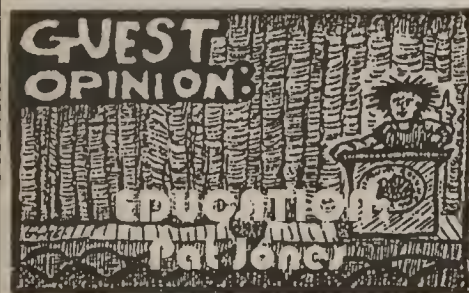 GUEST
OPINION:
EDUCATION:
Pat Jones